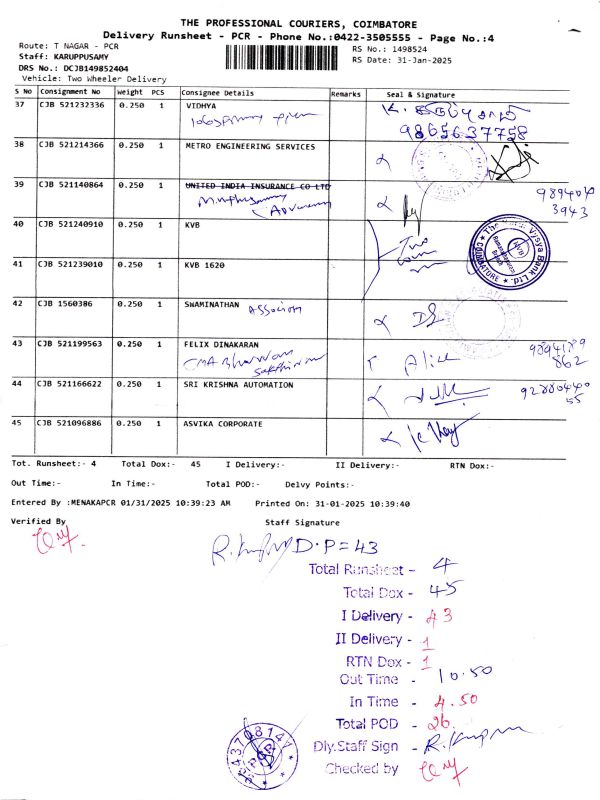 THE PROFESSIONAL COURIERS, COIMBATORE
Delivery Runsheet - PCR - Phone No.:0422-3505555 - Page No.:4
Route: T NAGAR - PCR
RS No.: 1498524
Staff: KARUPPUSAMY
RS Date: 31-Jan-2025
DRS No.: DCJB149852404
Vehicle: Two Wheeler Delivery
S No Consignment No Weight PCS Consignee Details Remarks Seal & Signature
37 CJB 521232336 0.250 1 VIDHYA
9865637758
38 CJB 521214366 0.250 1 METRO ENGINEERING SERVICES
39 CJB 521140864 0.250 1 UNITED INDIA INSURANCE CO LTD
989404
3943
40 CJB 521240910 0.250 1 KVB
41 CJB 521239010 0.250 1 KVB 1620
42 CJB 1560386 0.250 1 SWAMINATHAN
43 CJB 521199563 0.250 1 FELIX DINAKARAN
Alice
44 CJB 521166622 0.250 1 SRI KRISHNA AUTOMATION
45 CJB 521096886 0.250 1 ASVIKA CORPORATE
Tot. Runsheet:- 4 Total Dox:- 45 I Delivery:- II Delivery:- RTN Dox:-
Out Time:- In Time:- Total POD:- Delvy Points:-
Entered By :MENAKAPCR 01/31/2025 10:39:23 AM Printed On: 31-01-2025 10:39:40
Verified By Staff Signature
D.P=43
Total Runsheet - 4
Total Dox - 45
I Delivery - 43
II Delivery - 1
RTN Dox - 1
Out Time - 10.50
In Time - 4.50
Total POD - 26
Dly.Staff Sign -
Checked by